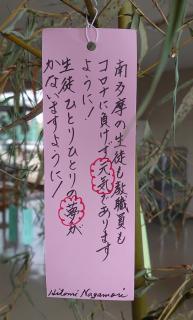 南多摩の生徒も教職員も
コロナに負けず元気であります
ように!
生徒ひとりひとりの夢が
かないますように!
Hitomi Nagamori